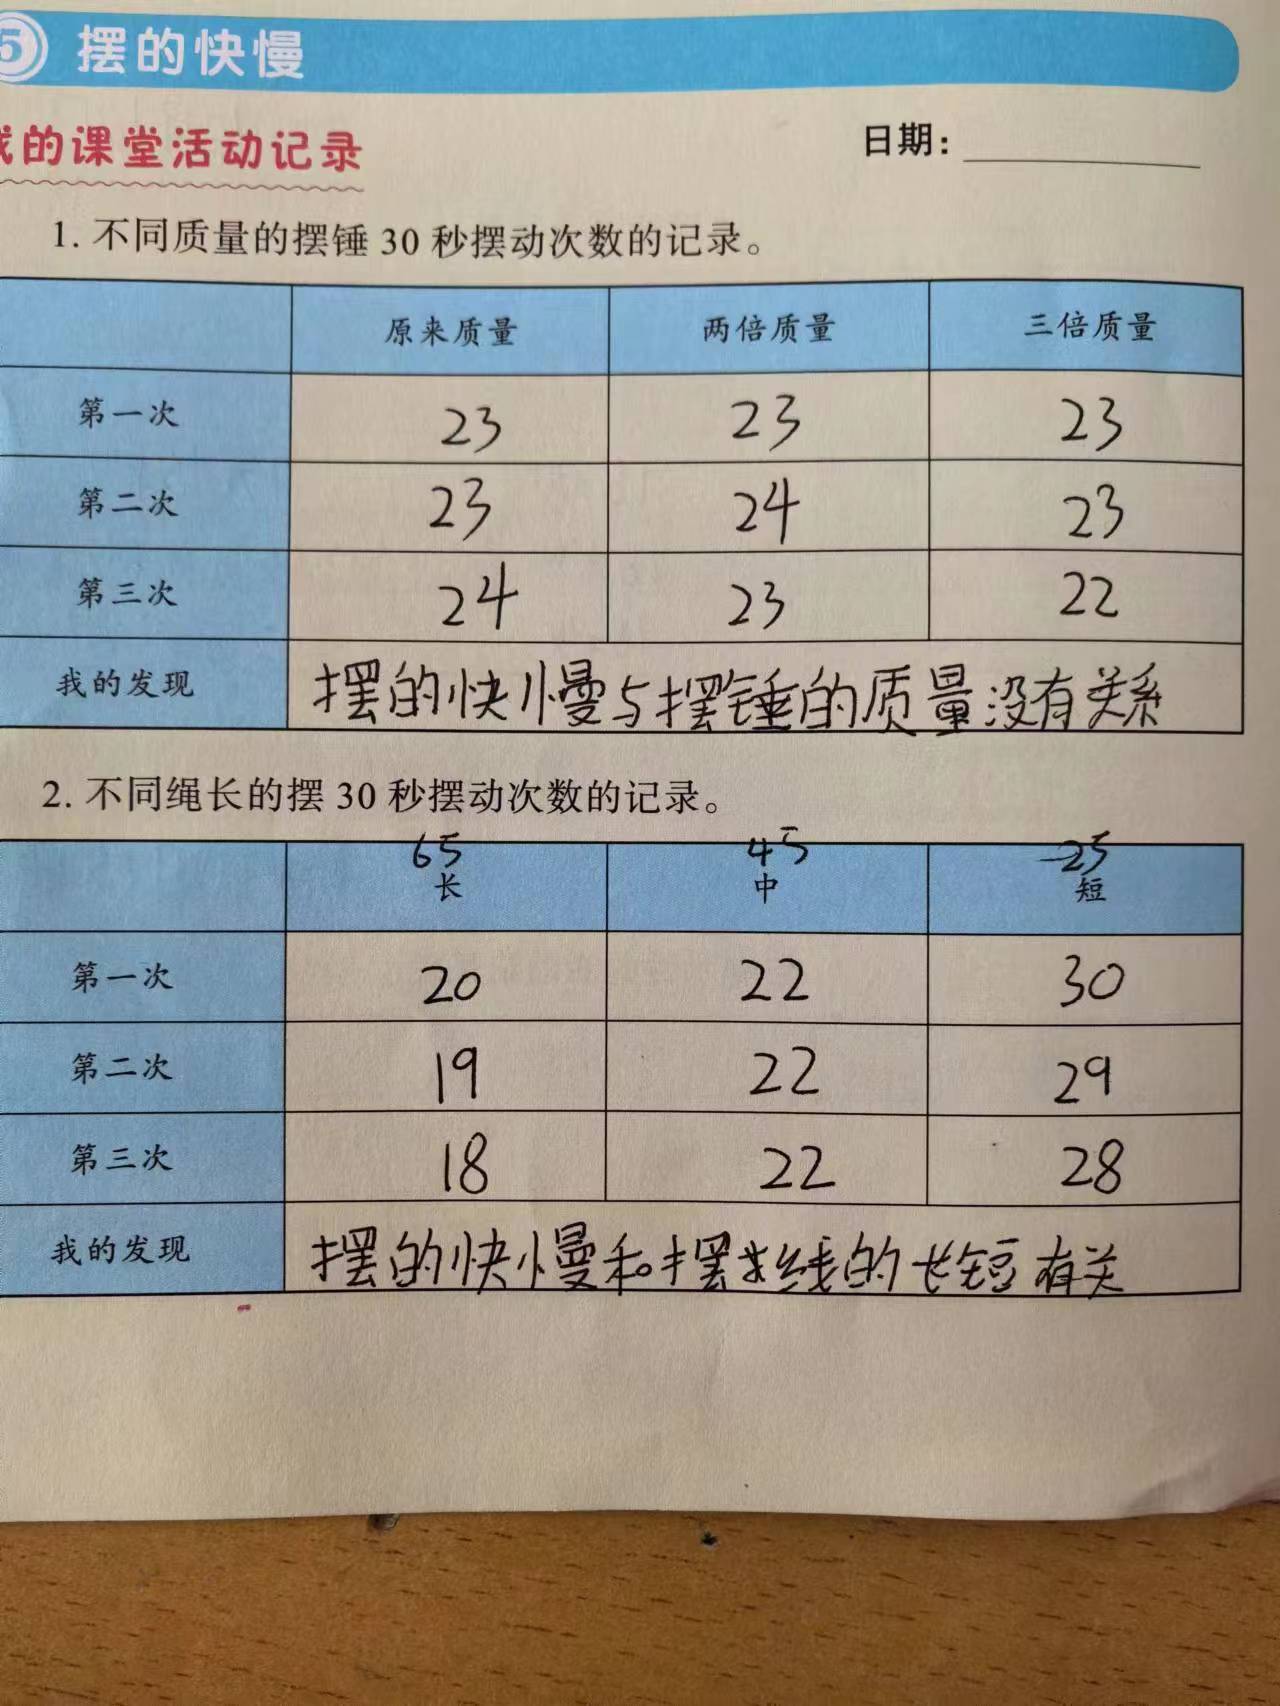 5 摆的快慢
我的课堂活动记录 日期：
1. 不同质量的摆锤 30 秒摆动次数的记录。
原来质量 两倍质量 三倍质量
第一次 23 23 23
第二次 23 24 23
第三次 24 23 22
我的发现 摆的快慢与摆锤的质量没有关系
2. 不同绳长的摆 30 秒摆动次数的记录。
65 45 25
长 中 短
第一次 20 22 30
第二次 19 22 29
第三次 18 22 28
我的发现 摆的快慢和摆线的长短有关